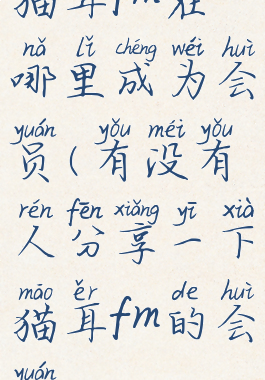 猫耳fm在
nǎ lǐ chéng wéi huì
哪里成为会
yuán yǒu méi yǒu
员(有没有
rén fēn xiǎng yī xià
人分享一下
māo ěr de huì
猫耳fm的会
yuán